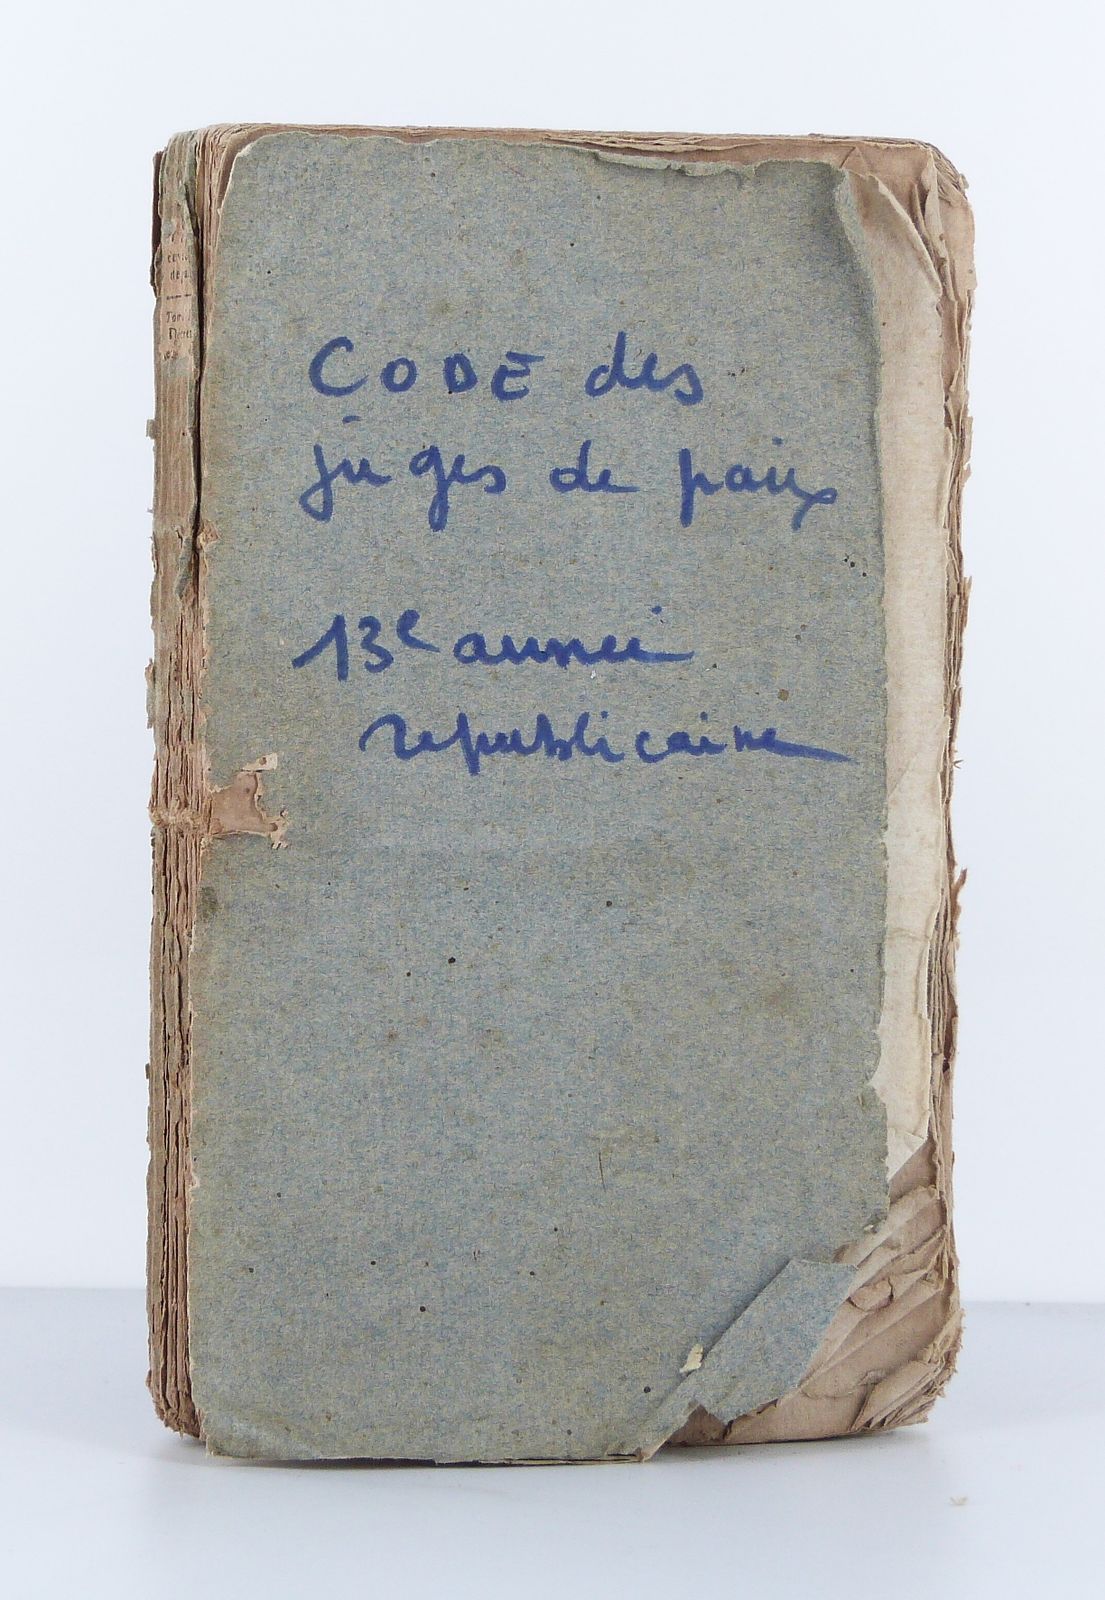 CODE des
juges de paix
13e année
republicaine